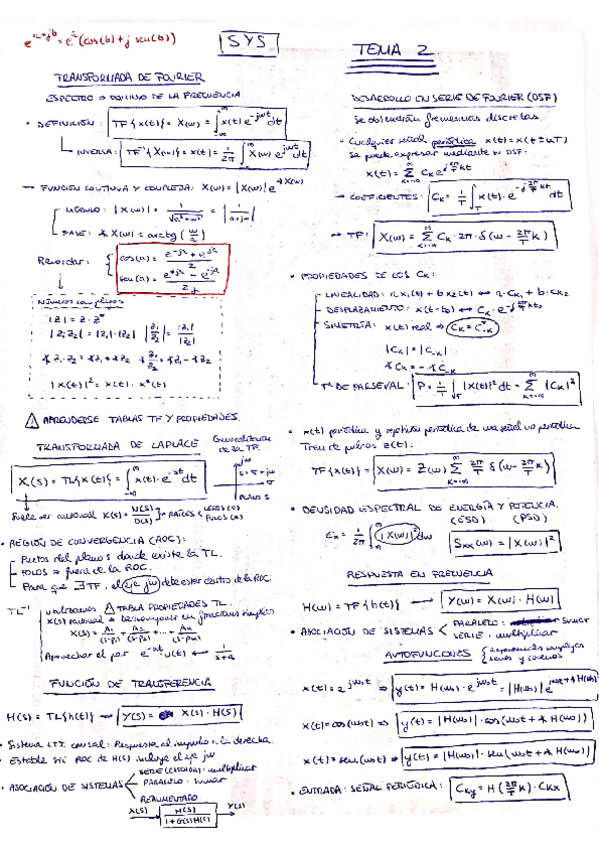 e^{a+jb} = e^a (cos(b) + j sen(b))
SYS
TEMA 2
TRANSFORMADA DE FOURIER
ESPECTRO ⇒ DOMINIO DE LA FRECUENCIA
• DEFINICIÓN: TF{x(t)} = X(ω) = ∫_{-∞}^{∞} x(t) e^{-jωt} dt
INVERSA: TF^{-1}{X(ω)} = x(t) = 1/2π ∫_{-∞}^{∞} X(ω) e^{jωt} dω
→ FUNCIÓN CONTINUA Y COMPLEJA: X(ω) = |X(ω)| e^{∢X(ω)}
MÓDULO: |X(ω)| = 1/√(a²+ω²) = |1/(a+jω)|
FASE: ∢X(ω) = arctg(ω/a)
Recordar:
cos(a) = (e^{-ja} + e^{ja})/2
sen(a) = (e^{+ja} - e^{-ja})/2j
Números complejos
|z| = z · z*
|z₁z₂| = |z₁|·|z₂| |z₁/z₂| = |z₁|/|z₂|
∢z₁·z₂ = ∢z₁ + ∢z₂ ∢z₁/z₂ = ∢z₁ - ∢z₂
|x(t)|² = x(t) · x*(t)
⚠ APRENDERSE TABLAS TF Y PROPIEDADES.
TRANSFORMADA DE LAPLACE
Generalización de la TF.
X(s) = TL{x(t)} = ∫_{-∞}^{∞} x(t) · e^{-st} dt
jω
s = σ + jω
σ
PLANO S
Suele ser racional X(s) = N(s)/D(s) RAÍCES CEROS (O) POLOS (X)
• REGIÓN DE CONVERGENCIA (ROC):
Puntos del plano s donde existe la TL.
POLOS ⇒ fuera de la ROC.
Para que ∃ TF, el eje jω debe estar dentro de la ROC.
TL^{-1} utilizamos ⚠ TABLA PROPIEDADES TL.
X(s) racional → Descomponer en fracciones simples
X(s) = A₁/(s-p₁) + A₂/(s-p₂) + ... + Aₙ/(s-pₙ)
Aprovechar el par e^{-at} u(t) ↔ 1/(s+a)
FUNCIÓN DE TRANSFERENCIA
H(s) = TL{h(t)} → Y(s) = X(s) · H(s)
• Sistema LTI causal: Respuesta al impulso a la derecha.
• Estable sii ROC de H(s) incluye el eje jω
• ASOCIACIÓN DE SISTEMAS
SERIE (CASCADA): multiplicar
PARALELO: sumar
REALIMENTADO
X(s) → H(s)/(1+G(s)H(s)) → Y(s)
DESARROLLO EN SERIE DE FOURIER (DSF)
Se obtendrán frecuencias discretas.
• Cualquier señal periódica x(t) = x(t ± nT)
se puede expresar mediante su DSF:
x(t) = Σ_{k=-∞}^{∞} C_k e^{j 2π/T kt}
→ COEFICIENTES: C_k = 1/T ∫_T x(t) · e^{-j 2π/T kt} dt
→ TF: X(ω) = Σ_{k=-∞}^{∞} C_k · 2π · δ(ω - 2π/T k)
• PROPIEDADES DE LOS C_k:
LINEALIDAD: a x₁(t) + b x₂(t) ↔ a · C_{k1} + b · C_{k2}
DESPLAZAMIENTO: x(t-t₀) ↔ C_k · e^{-j 2π/T kt₀}
SIMETRÍA: x(t) real ⇒ C_k = C*_{-k}
|C_k| = |C_{-k}|
∢C_k = -∢C_{-k}
Tª DE PARSEVAL: P = 1/T ∫_T |x(t)|² dt = Σ_{k=-∞}^{∞} |C_k|²
• x(t) periódica y repetición periódica de una señal no periódica
Tren de pulsos z(t):
TF{x(t)} = X(ω) = Z(ω) Σ_{k=-∞}^{∞} 2π/T δ(ω - 2π/T k)
• DENSIDAD ESPECTRAL DE ENERGÍA Y POTENCIA.
(ESD) (PSD)
E_x = 1/2π ∫_{-∞}^{∞} |X(ω)|² dω S_{xx}(ω) = |X(ω)|²
RESPUESTA EN FRECUENCIA
H(ω) = TF{h(t)} → Y(ω) = X(ω) · H(ω)
• ASOCIACIÓN DE SISTEMAS
PARALELO: sumar
SERIE: multiplicar
AUTOFUNCIONES exponenciales complejas senos y cosenos
x(t) = e^{jω₀t} ⇒ y(t) = H(ω₀) · e^{jω₀t} = |H(ω₀)| e^{jω₀t + ∢H(ω₀)}
x(t) = cos(ω₀t) ⇒ y(t) = |H(ω₀)| · cos(ω₀t + ∢H(ω₀))
x(t) = sen(ω₀t) ⇒ y(t) = |H(ω₀)| · sen(ω₀t + ∢H(ω₀))
• ENTRADA: SEÑAL PERIÓDICA: C_{ky} = H(2π/T k) · C_{kx}